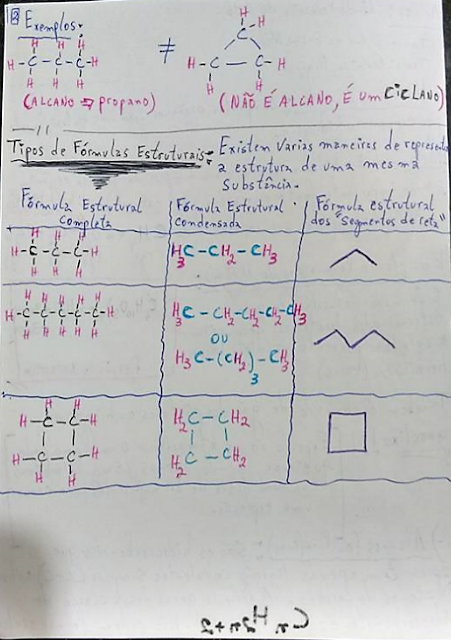 Exemplos:
H H H
H-C-C-C-H
H H H
(ALCANO → propano)
≠
H H
C
H-C C-H
H H
(NÃO É ALCANO, É um CICLANO)
Tipos de Fórmulas Estruturais: Existem várias maneiras de representar
a estrutura de uma mesma
substância.
Fórmula Estrutural Completa
Fórmula Estrutural condensada
Fórmula estrutural dos "Segmentos de reta"
H H H
H-C-C-C-H
H H H
H3C-CH2-CH3
H H H H H
H-C-C-C-C-C-H
H H H H H
H3C-CH2-CH2-CH2-CH3
OU
H3C-(CH2)3-CH3
H H
H-C-C-H
H-C-C-H
H H
H2C-CH2
H2C-CH2
CnH2n+2